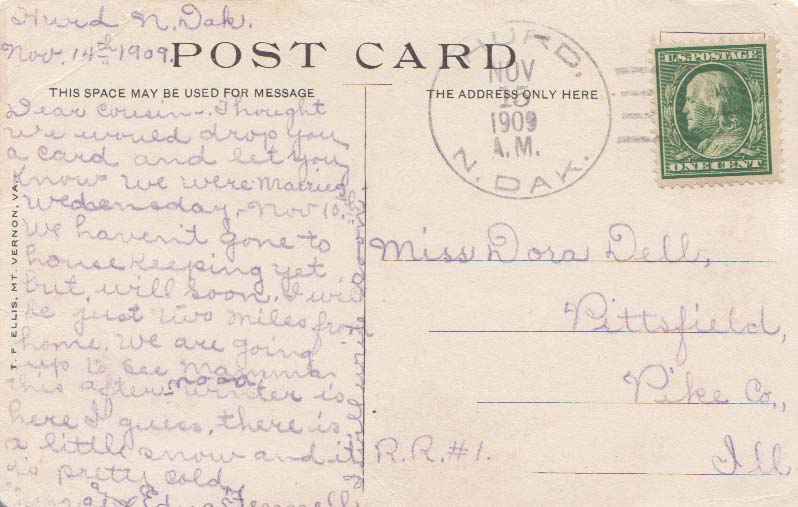 Hurd N. Dak.
Nov. 14th 1909.
POST CARD
THIS SPACE MAY BE USED FOR MESSAGE
THE ADDRESS ONLY HERE
HURD.
NOV
15
1909
A.M.
N. DAK.
U.S. POSTAGE
ONE CENT
Dear Cousin-. Thought
we would drop you
a card and let you
know we were married
Wedensday, Nov 10.th
We haven't gone to
house keeping yet
but, will soon. I will
be just two miles from
home. We are going
up to see Mamma
this after-noon. Winter is
here I guess, there is
a little snow and it
is pretty cold
& Edna
write soon
Miss Dora Dell,
Pittsfield,
Pike Co.,
R.R.#1.
Ill
T. F. ELLIS, MT. VERNON, VA.